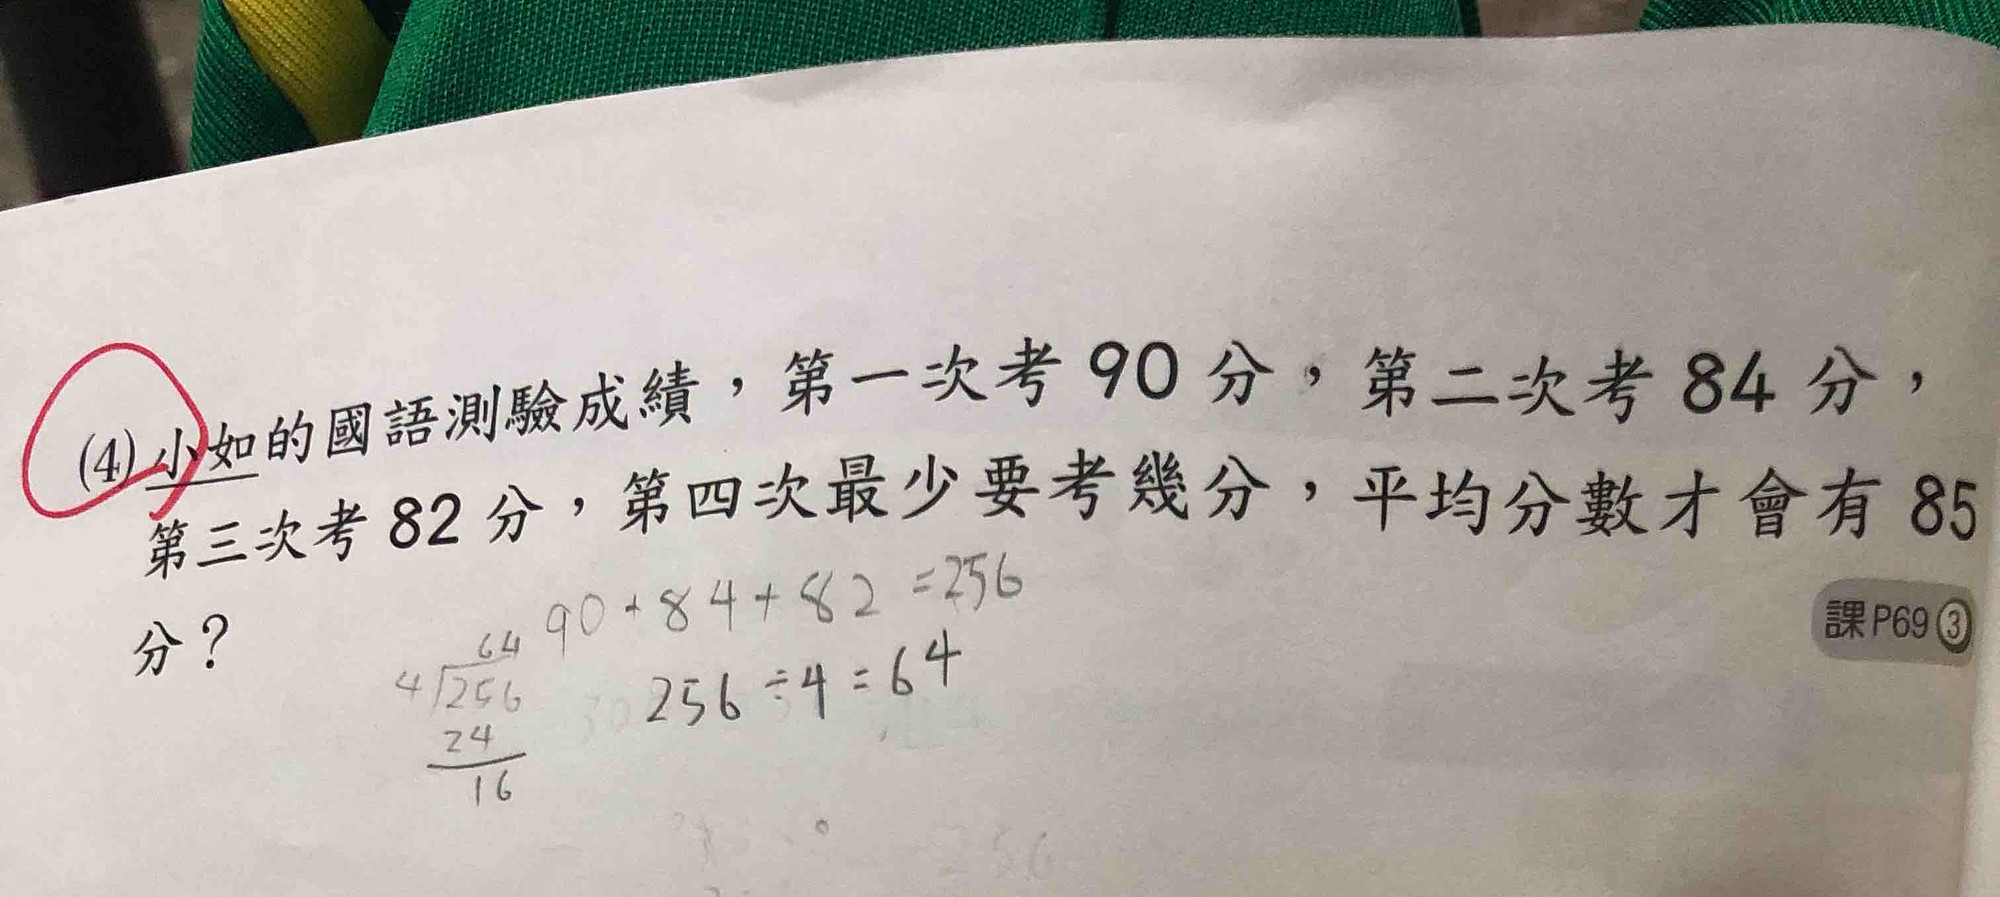 (4) 小如的國語測驗成績，第一次考 90 分，第二次考 84 分，
第三次考 82 分，第四次最少要考幾分，平均分數才會有 85
分？
課P69③
90+84+82=256
256÷4=64
64
4 256
24
16
256